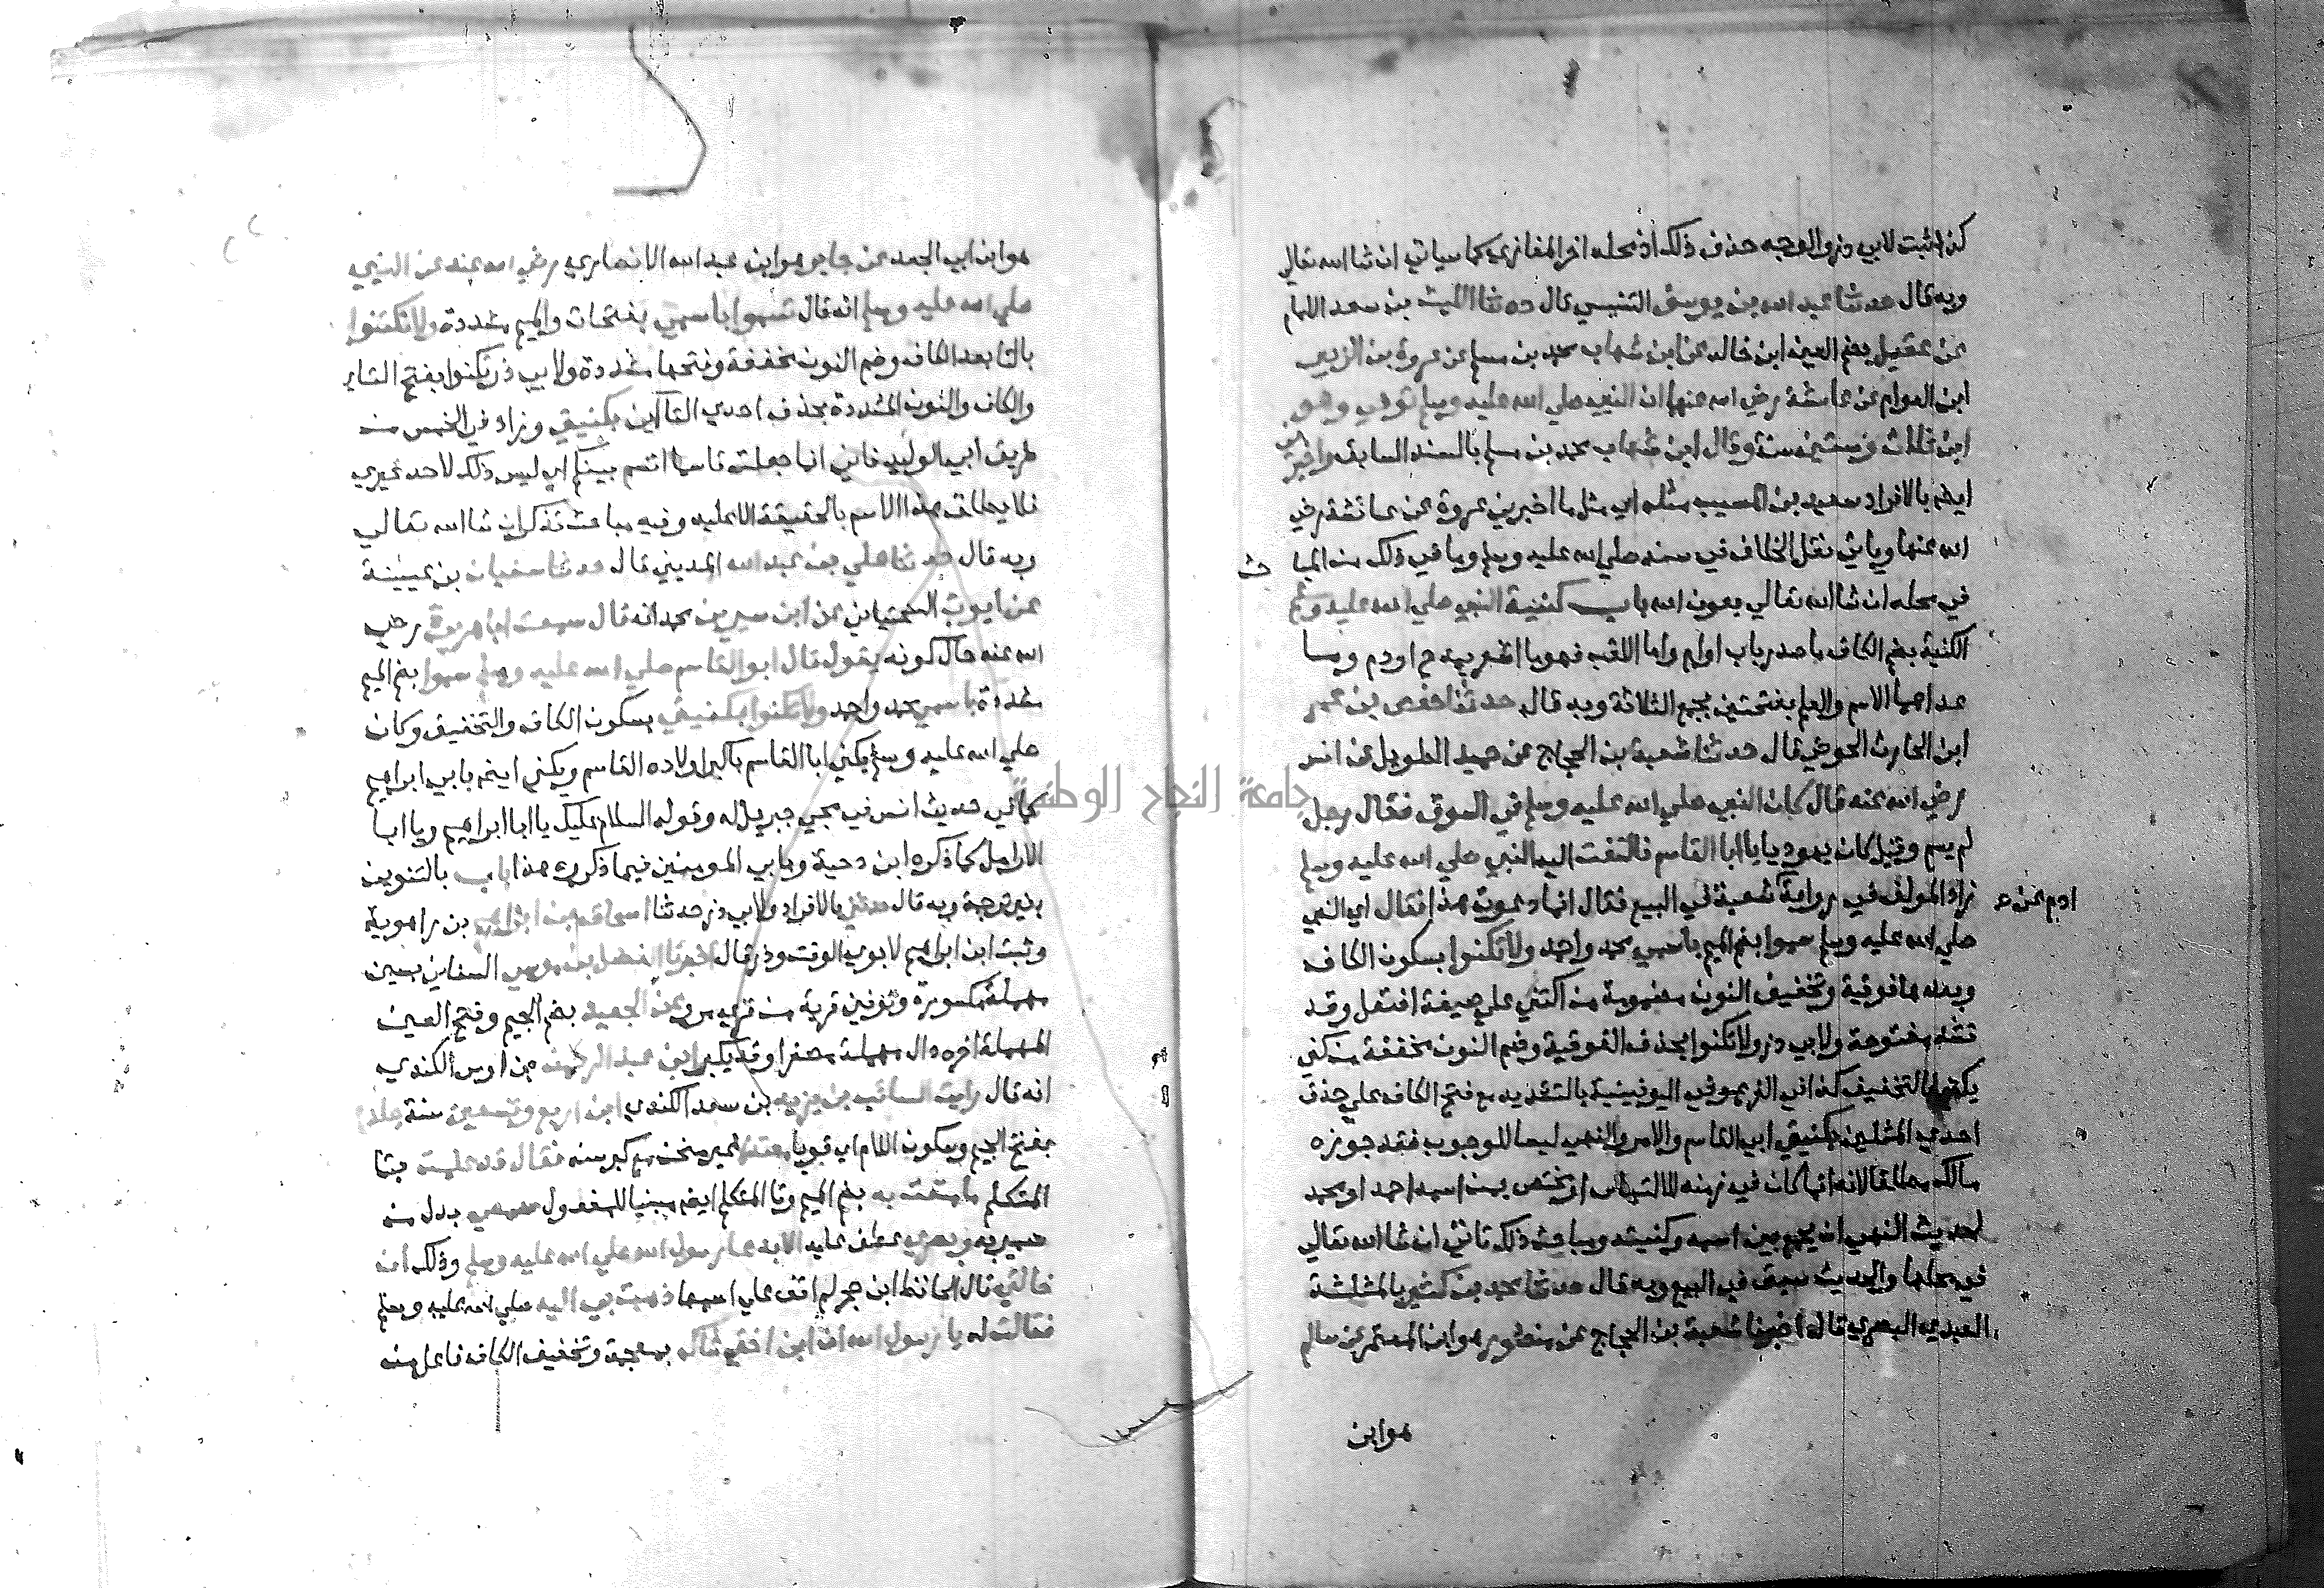 كذا ثبت لابي ذر والوجه حذف ذلك اذ محله اخر المغازي كما سياتي ان شا الله تعالي
وبه قال حدثنا عبد الله بن يوسف التنيسي قال حدثنا الليث بن سعد الامام
عن عقيل بضم العين ابن خالد عن ابن شهاب محمد بن مسلم عن عروة بن الزبير
ابن العوام عن عايشة رضي الله عنها ان النبي صلي الله عليه وسلم توفي وهو
ابن ثلاث وستين سنة وقال ابن شهاب محمد بن مسلم بالسند السابق واخبرني
ايضا بالافراد سعيد بن المسيب مثله اي مثل ما اخبرني عروة عن عائشة رضي
الله عنها وياتي نقل الخلاف في سنه صلي الله عليه وسلم وما في ذلك من المباحث
في محله ان شا الله تعالي بعون الله باب كنية النبي صلي الله عليه وسلم
الكنية بضم الكاف ما صدر باب اوام واما اللقب فهو ما اشعر بمدح او ذم وما
عداهما الاسم والعلم بفتحتين يجمع الثلاثة وبه قال حدثنا حفص بن عمر
ابن الحارث الحوضي قال حدثنا شعبة بن الحجاج عن حميد الطويل عن انس
رضي الله عنه قال كان النبي صلي الله عليه وسلم في السوق فقال رجل
لم يسم وقيل كان يهوديا يا ابا القاسم فالتفت اليه النبي صلي الله عليه وسلم
زاد المولف في رواية شعبة في البيع فقال انما دعوت هذا فقال اي النبي
ادم عن
صلي الله عليه وسلم سموا بضم الميم باسمي محمد واحمد ولا تكتنوا بسكون الكاف
وبعدها فوقية وتخفيف النون مضمومة من اكتني علي صيغة افتعل وقد
تشدد مفتوحة ولابي ذر ولا تكنوا بحذف الفوقية وضم النون مخففة من كني
يكني بالتخفيف كذا في الفرع وفي اليونينية بالتشديد مع فتح الكاف علي حذف
احدي المثلين بكنيتي ابي القاسم والامر والنهي ليسا للوجوب فقد جوزه
مالك مطلقا لانه انما كان في زمنه للالتباس او يختص بمن اسمه احمد او محمد
لحديث النهي ان يجمع بين اسمه وكنيته ومباحث ذلك تاتي ان شا الله تعالي
في محلها والحديث سبق في البيع وبه قال حدثنا محمد بن كثير بالمثلثة
العبدي البصري قال اخبرنا شعبة بن الحجاج عن منصور هو ابن المعتمر عن سالم
هو ابن
هو ابن ابي الجعد عن جابر هو ابن عبد الله الانصاري رضي الله عنه عن النبي
صلي الله عليه وسلم انه قال تسموا باسمي بفتحات والميم مشددة ولا تكتنوا
بالتا بعد الكاف وضم النون مخففة وفتحها مشددة ولابي ذر تكنوا بفتح التا
والكاف والنون المشددة بحذف احدي التاآين بكنيتي وزاد في الخمس من
طريق ابي الوليد فاني انما جعلت قاسما اقسم بينكم اي ليس ذلك لاحد غيري
فلا يطلق هذا الاسم بالحقيقة الا عليه وفيه مباحث تذكر ان شا الله تعالي
وبه قال حدثنا علي بن عبد الله المديني قال حدثنا سفيان بن عيينة
عن ايوب السختياني عن ابن سيرين محمد انه قال سمعت ابا هريرة رضي
الله عنه حال كونه يقول قال ابو القاسم صلي الله عليه وسلم سموا بضم الميم
مشددة باسمي محمد واحمد ولا تكنوا بكنيتي بسكون الكاف والتخفيف وكان
صلي الله عليه وسلم يكني ابا القاسم باكبر اولاده القاسم ويكني ايضا بابي ابراهيم
كما في حديث انس في مجي جبريل له وقوله السلام عليك يا ابا ابراهيم ويا ابا
الارامل كما ذكره ابن دحية وبابي المومنين فيما ذكره هذا باب بالتنوين
بغير ترجمة وبه قال حدثني بالافراد ولابي ذر حدثنا اسحاق بن ابراهيم بن راهوية
وثبت ابن ابراهيم لابوي الوقت وذر قال اخبرنا الفضل بن موسي السيناني بسين
مهملة مكسورة ونونين قرية من قري مرو عن الجعيد بضم الجيم وفتح العين
المهملة اخره دال مهملة مصغرا وقد يكبر ابن عبد الرحمن بن اوس الكندي
انه قال رايت السائب بن يزيد بن سعد الكندي ابن اربع وتسعين سنة جلدا
بفتح الجيم وسكون اللام اي قويا معتدلا غير منحن مع كبر سنه فقال قد علمت بتا
المتكلم ما متعت به بضم الميم وتا المتكلم ايضا مبنيا للمفعول سمعي بدل من
ضمير به وبصري عطف عليه الا بدعا رسول الله صلي الله عليه وسلم وذلك ان
خالتي قال الحافظ ابن حجر لم اقف علي اسمها ذهبت بي اليه صلي الله عليه وسلم
فقالت له يا رسول الله ان ابن اختي شاك بمعجمة وتخفيف الكاف فاعل من
جامعة النجاح الوطنية